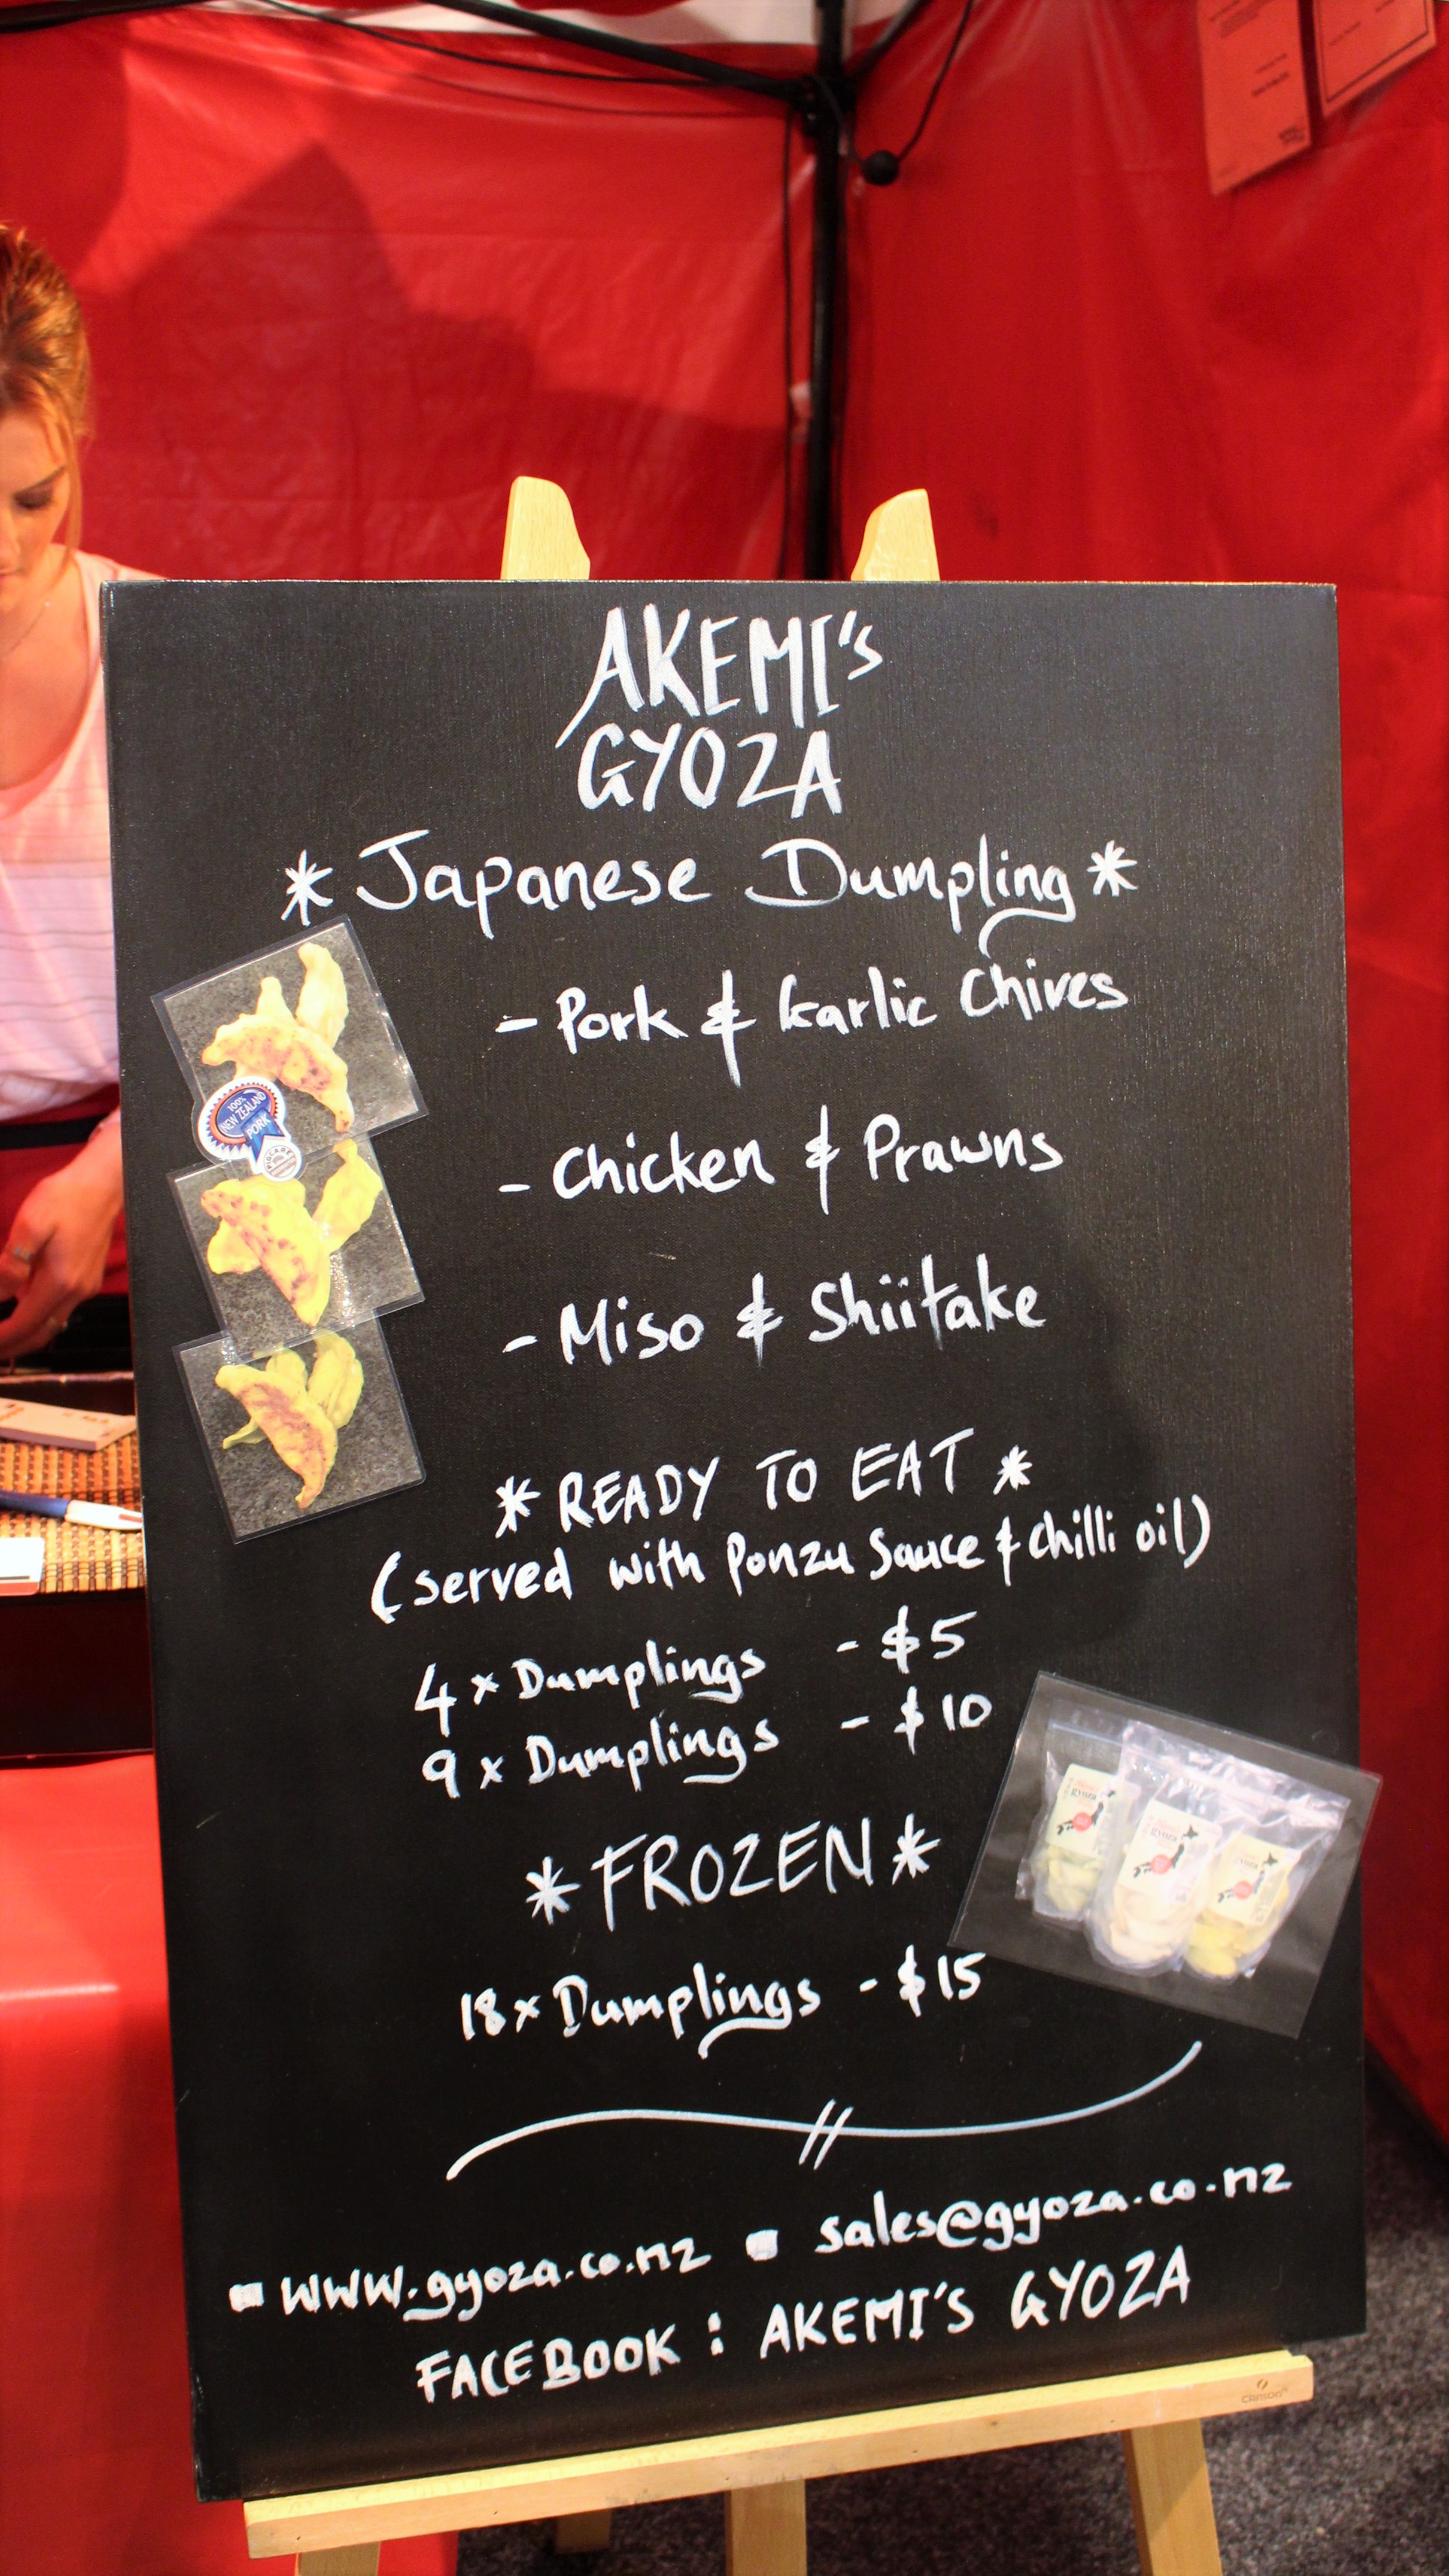 AKEMI's
GYOZA
* Japanese Dumpling *
- Pork & Garlic Chives
100%
NEW ZEALAND
PORK
- Chicken & Prawns
- Miso & Shiitake
* READY TO EAT *
(served with Ponzu Sauce & chilli oil)
4 x Dumplings - $5
9 x Dumplings - $10
gyoza
gyoza
gyoza
* FROZEN *
18 x Dumplings - $15
www.gyoza.co.nz
sales@gyoza.co.nz
FACEBOOK : AKEMI'S GYOZA
CANSON